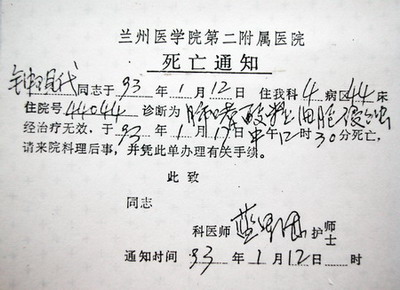 兰州医学院第二附属医院
死亡通知
钟现代同志于93年1月12日住我科4病区44床
住院号44044诊断为肺嗜酸粒细胞浸
经治疗无效,于93年1月1日中午12时30分死亡,
请来院料理后事,并凭此单办理有关手续。
此致
同志
科医师 蓝 护师士
通知时间 93年1月12日 时